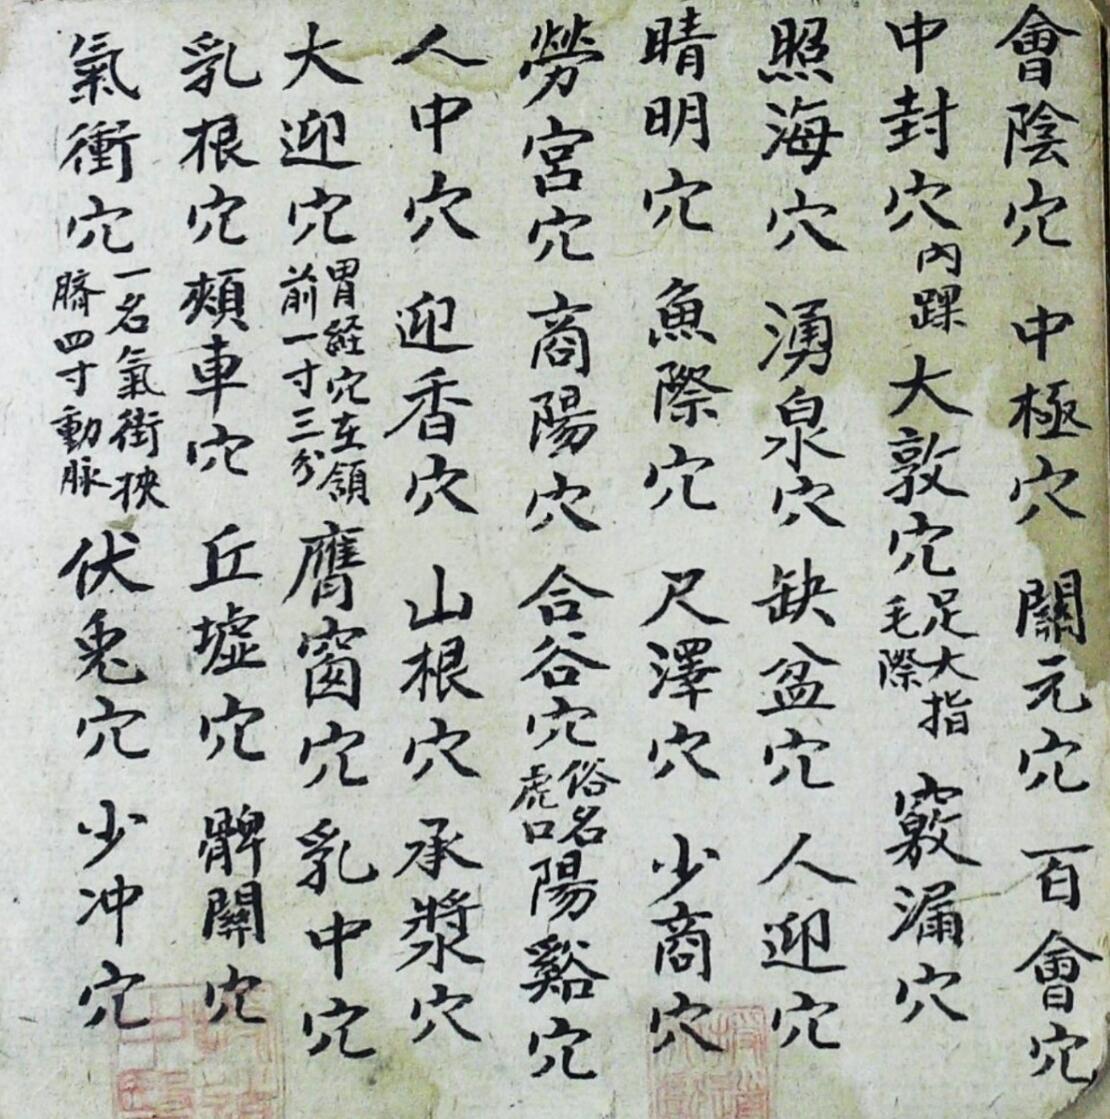 會陰穴 中極穴 關元穴 百會穴
中封穴 內踝 大敦穴 足大指毛際 竅漏穴
照海穴 湧泉穴 缺盆穴 人迎穴
晴明穴 魚際穴 尺澤穴 少商穴
勞宮穴 商陽穴 合谷穴 俗名虎口 陽谿穴
人中穴 迎香穴 山根穴 承漿穴
大迎穴 胃経穴在頷前一寸三分 膺窗穴 乳中穴
乳根穴 頰車穴 丘墟穴 髀關穴
氣衝穴 一名氣街挾臍四寸動脈 伏兎穴 少冲穴